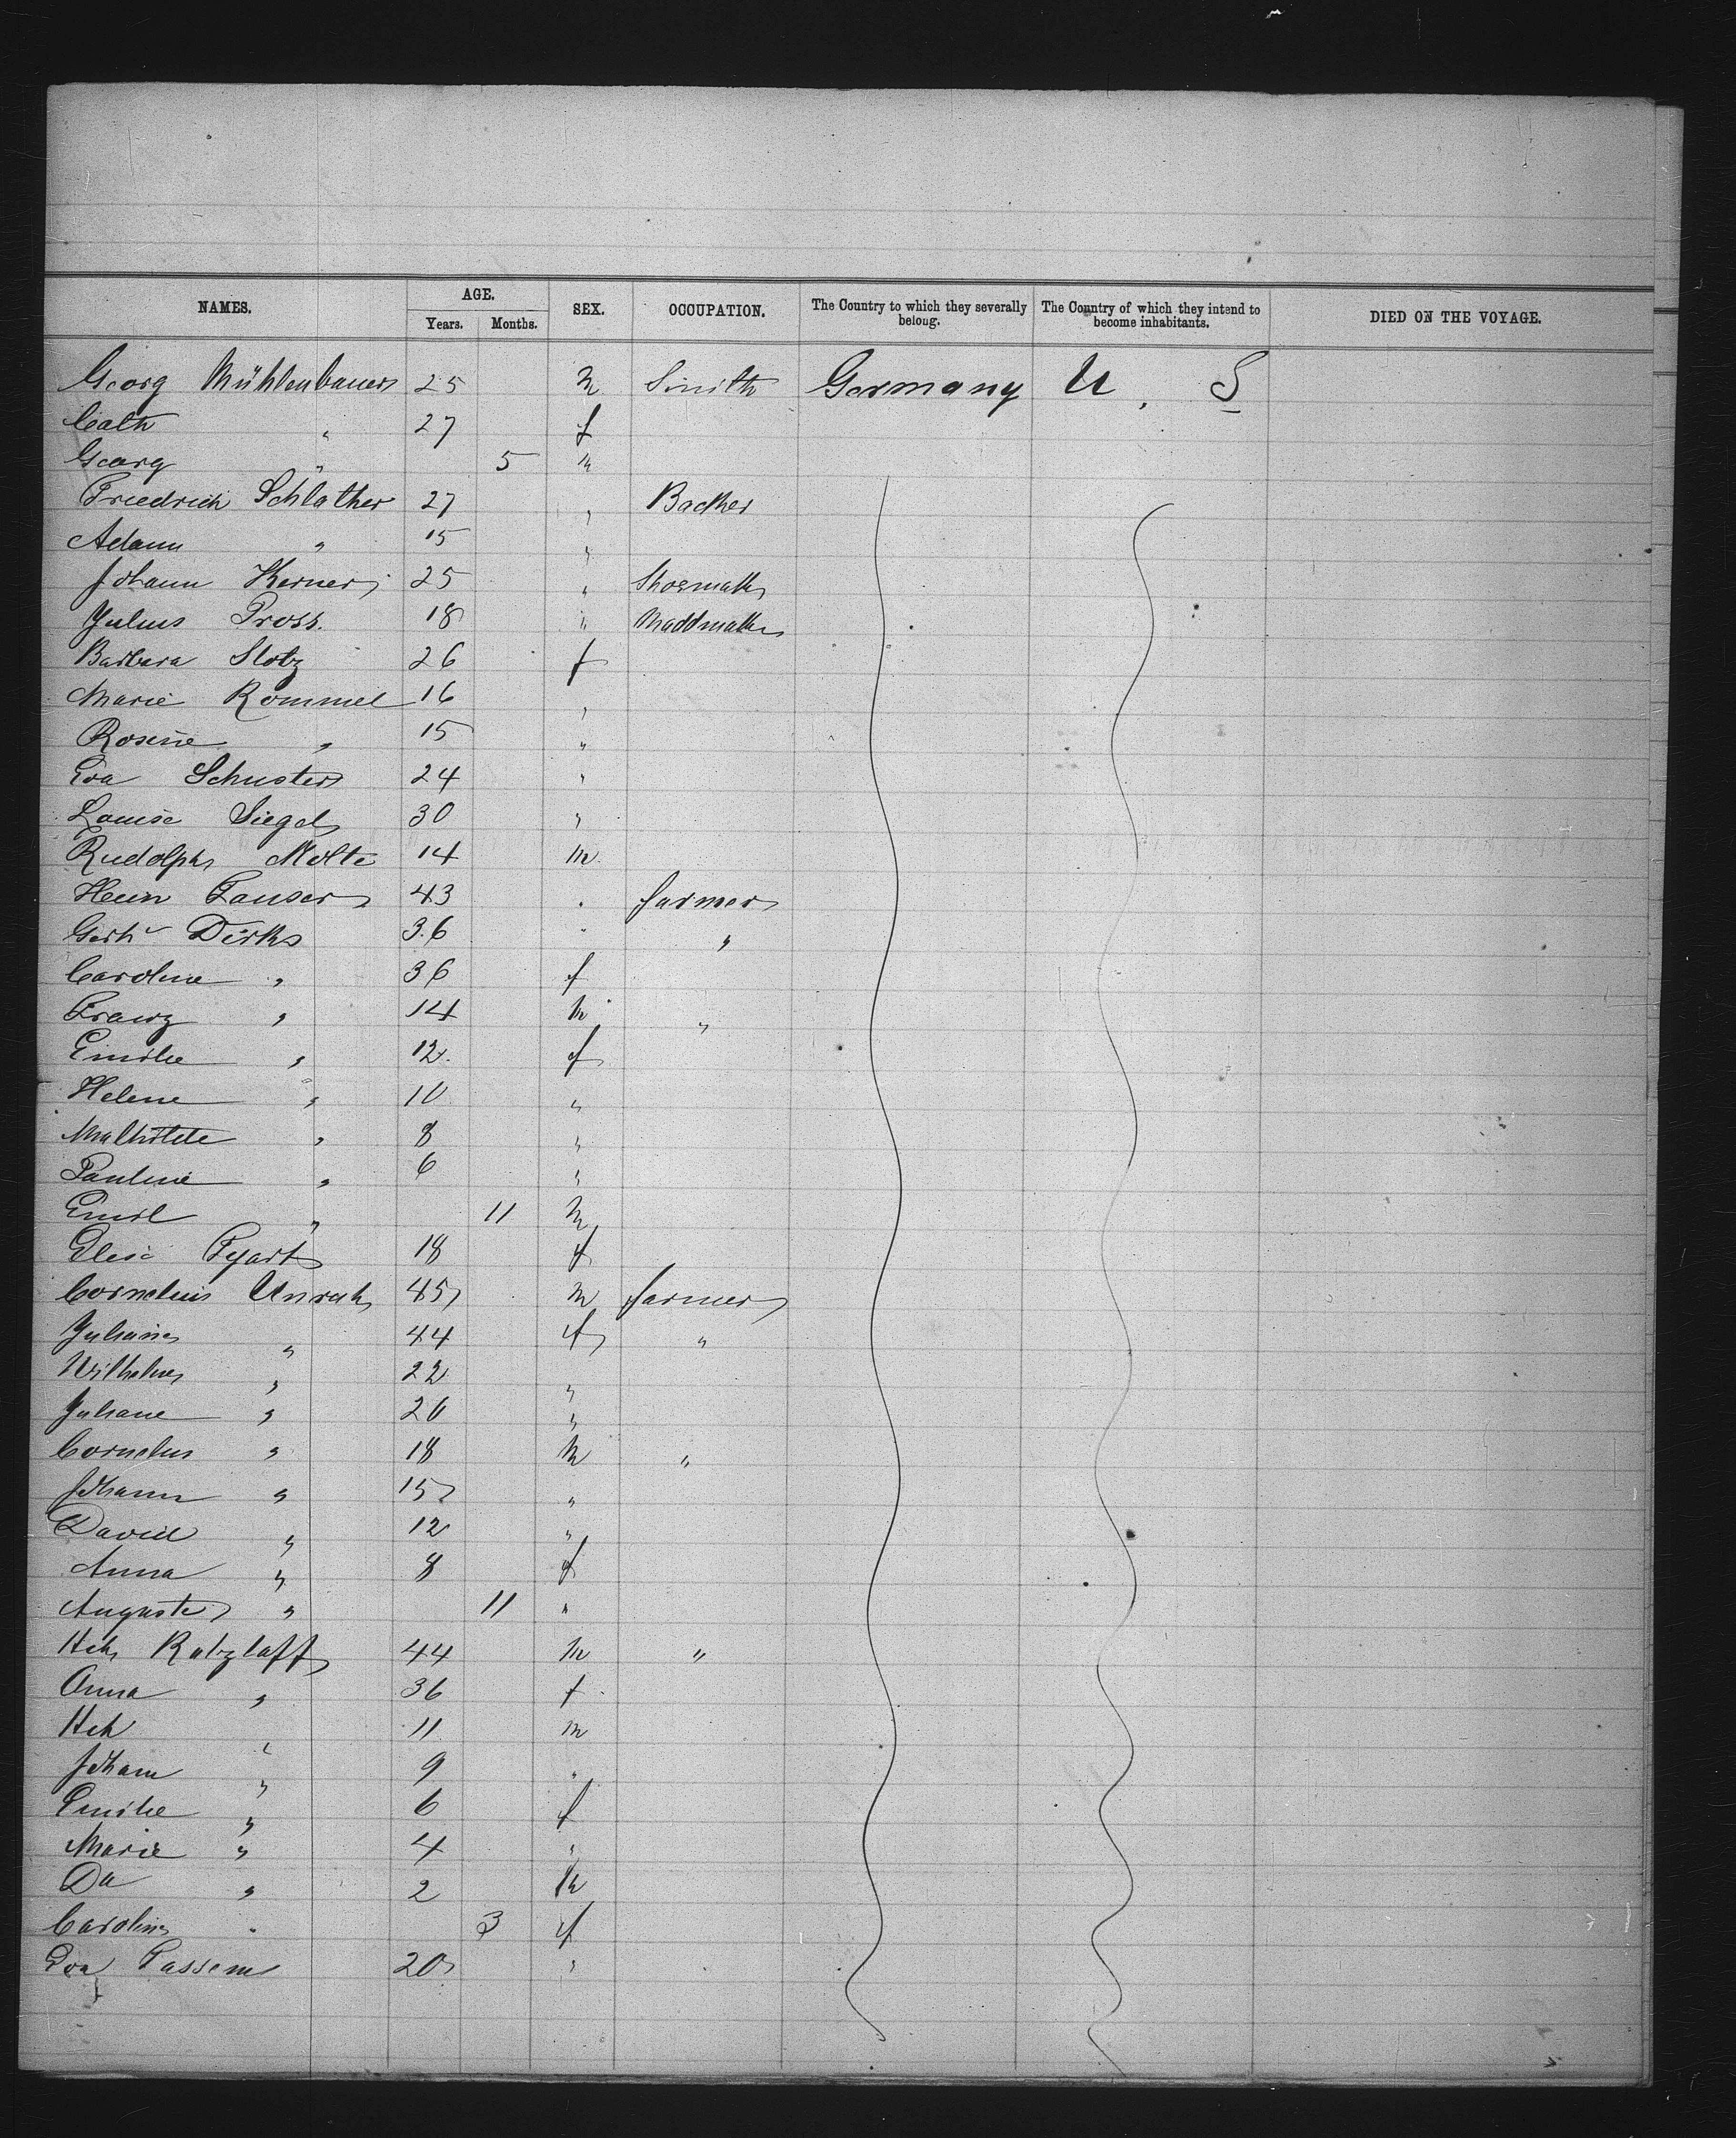 NAMES. AGE. SEX. OCCUPATION. The Country to which they severally belong. The Country of which they intend to become inhabitants. DIED ON THE VOYAGE.
Years. Months.
Georg Mühlenbauer 25 M Smith Germany U. S
Cath " 27 f
Georg " 5 m
Friedrich Schlather 27 " Backer
Adam " 15 "
Johann Kerner 25 " Shoemak
Julius Pross. 18 "
Barbara Stotz 26 f
Marie Rommel 16 "
Rosine " 15 "
Eva Schuster 24 "
Louise Siegel 30 "
Rudolph Molte 14 m
Heinr 43 " farmer
Gerh Dirks 36 " "
Caroline " 36 f
Franz " 14 m "
Emilie " 12 f
Helene " 10 "
Mathilde " 8 "
Pauline " 6 "
Emil " 11 m
Elise 18 f
Cornelius Unrah 45 m farmer
Juliane " 44 f "
Wilhelm " 22 "
Juliane " 20 "
Cornelius " 18 m "
Johann " 15 "
David " 12 "
Anna " 8 f
Auguste " 11 "
Hch Ratzlaff 44 m "
Anna " 36 f
Hch " 11 m
Johann " 9 "
Emilie " 6 f
Marie " 4 "
Dd " 2 m
Caroline " 3 f
Eva 20 "